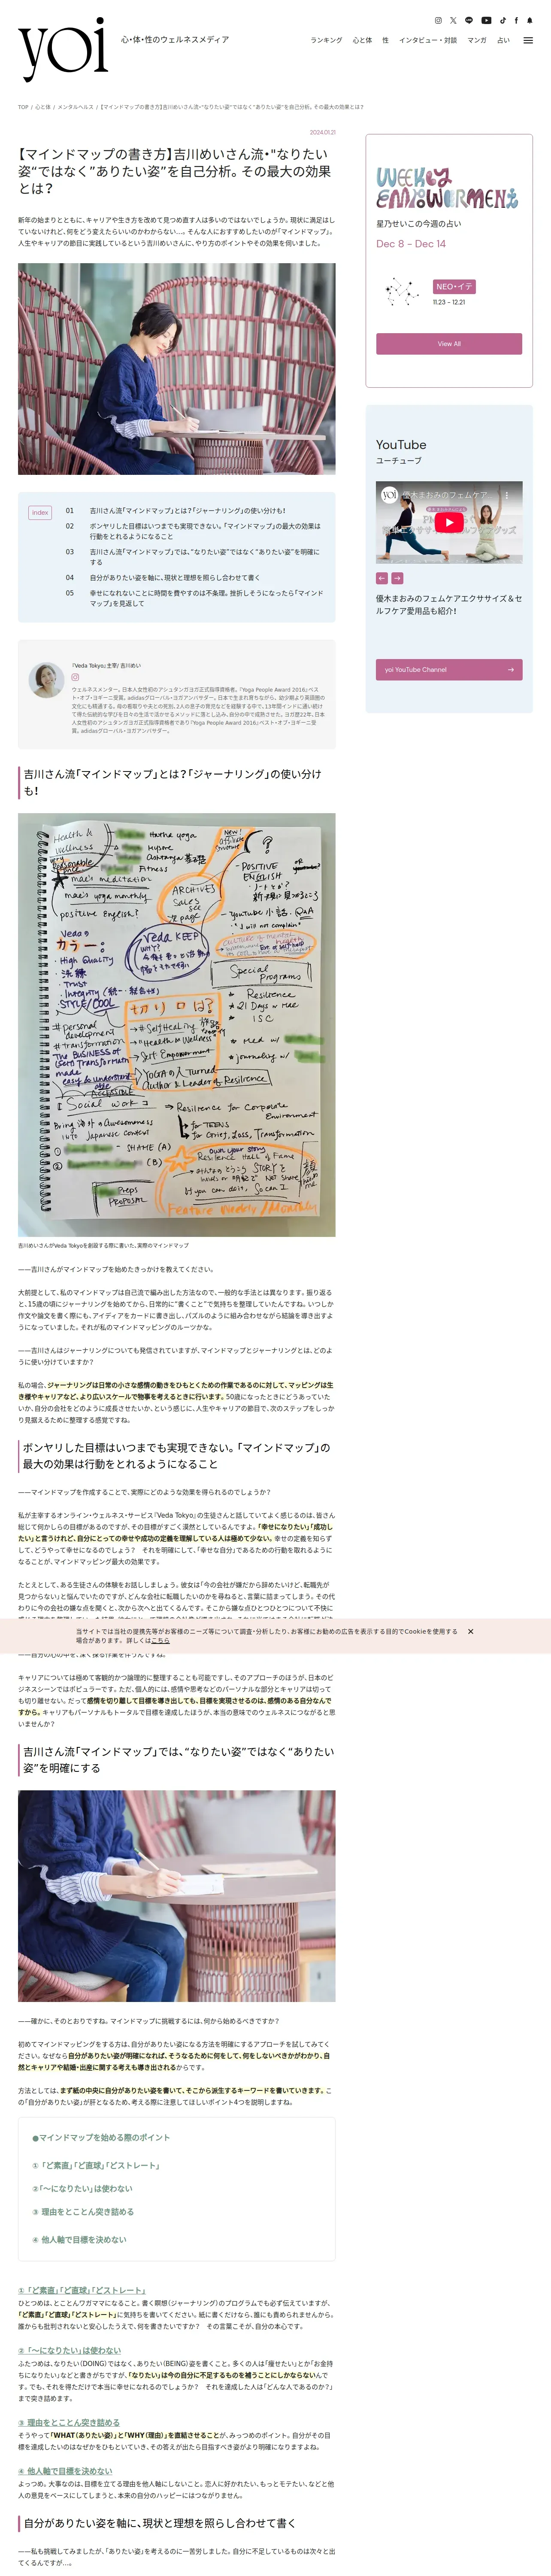 yoi
心・体・性のウェルネスメディア
ランキング 心と体 性 インタビュー・対談 マンガ 占い
TOP / 心と体 / メンタルヘルス / 【マインドマップの書き方】吉川めいさん流・"なりたい姿"ではなく"ありたい姿"を自己分析。その最大の効果とは？
2024.01.21
【マインドマップの書き方】吉川めいさん流・"なりたい
姿“ではなく”ありたい姿”を自己分析。その最大の効果
とは？
新年の始まりとともに、キャリアや生き方を改めて見つめ直す人は多いのではないでしょうか。現状に満足はし
ていないけれど、何をどう変えたらいいのかわからない…。そんな人におすすめしたいのが「マインドマップ」。
人生やキャリアの節目に実践しているという吉川めいさんに、やり方のポイントやその効果を伺いました。
index
01 吉川さん流「マインドマップ」とは？「ジャーナリング」の使い分けも！
02 ボンヤリした目標はいつまでも実現できない。「マインドマップ」の最大の効果は
行動をとれるようになること
03 吉川さん流「マインドマップ」では、“なりたい姿”ではなく“ありたい姿”を明確に
する
04 自分がありたい姿を軸に、現状と理想を照らし合わせて書く
05 幸せになれないことに時間を費やすのは不条理。挫折しそうになったら「マインド
マップ」を見返して
『Veda Tokyo』主宰/ 吉川めい
ウェルネスメンター。日本人女性初のアシュタンガヨガ正式指導資格者。『Yoga People Award 2016』ベス
ト・オブ・ヨギーニ受賞。adidasグローバル・ヨガアンバサダー。日本で生まれ育ちながら、幼少期より英語圏の
文化にも精通する。母の看取りや夫との死別、2人の息子の育児などを経験する中で、13年間インドに通い続け
て得た伝統的な学びを日々の生活で活かせるメソッドに落とし込み、自分の中で成熟させた。ヨガ歴22年、日本
人女性初のアシュタンガヨガ正式指導資格者であり『Yoga People Award 2016』ベスト・オブ・ヨギーニ受
賞。adidasグローバル・ヨガアンバサダー。
吉川さん流「マインドマップ」とは？「ジャーナリング」の使い分け
も！
Health &
Wellness
Hatha yoga
Hyouka Ashtanga 基礎
mae's meditation
mae's monthly
positive English?
ARCHIVES
Sales page
New!
POSITIVE ENGLISH
Vedaのカラー:
・High Quality
・洗練
・Trust
・Integrity (統一・整合性)
STYLE/COOL
Veda KEEP
Special Programs
* Resilience
* 21 Days w Mae
* ISC
切り口は？
#SelfHealing
Health & Wellness
Self Empowerment
YOGAの入口 Turned
Author & Leader of Resilience
#personal development
The BUSINESS of
Self Transformation
made
easy & understandable
ACCESSIBLE
Social work
Bring 海外の Awesomeness
into Japanese context
Resilience for Corporate
Environment
for TEENS
Grief, Loss, Transformation
Resilience Hall of Fame
Prep
PROPOSAL
Feature Weekly/Monthly
吉川めいさんがVeda Tokyoを創設する際に書いた、実際のマインドマップ
——吉川さんがマインドマップを始めたきっかけを教えてください。
大前提として、私のマインドマップは自己流で編み出した方法なので、一般的な手法とは異なります。振り返る
と、15歳の頃にジャーナリングを始めてから、日常的に“書くこと”で気持ちを整理していたんですね。いつしか
作文や論文を書く際にも、アイディアをカードに書き出し、パズルのように組み合わせながら結論を導き出すよ
うになっていました。それが私のマインドマッピングのルーツかな。
——吉川さんはジャーナリングについても発信されていますが、マインドマップとジャーナリングとは、どのよ
うに使い分けていますか？
私の場合、ジャーナリングは日常の小さな感情の動きをひもとくための作業であるのに対して、マッピングは生
き様やキャリアなど、より広いスケールで物事を考えるときに行います。50歳になったときにどうあっていた
いか、自分の会社をどのように成長させたいか、という感じに、人生やキャリアの節目で、次のステップをしっか
り見据えるために整理する感覚ですね。
ボンヤリした目標はいつまでも実現できない。「マインドマップ」の
最大の効果は行動をとれるようになること
——マインドマップを作成することで、実際にどのような効果を得られるのでしょうか？
私が主宰するオンライン・ウェルネス・サービス『Veda Tokyo』の生徒さんと話していてよく感じるのは、皆さん
総じて何かしらの目標があるのですが、その目標がすごく漠然としているんですよ。「幸せになりたい」「成功し
たい」と言うけれど、自分にとっての幸せや成功の定義を理解している人は極めて少ない。幸せの定義を知らず
して、どうやって幸せになるのでしょう？　それを明確にして、「幸せな自分」であるための行動を取れるように
なることが、マインドマッピング最大の効果です。
たとえとして、ある生徒さんの体験をお話ししましょう。彼女は「今の会社が嫌だから辞めたいけど、転職先が
見つからない」と悩んでいたのですが、どんな会社に転職したいのかを尋ねると、言葉に詰まってしまう。その代
わりに今の会社の嫌な点を聞くと、次から次へと出てくるんです。そこから嫌な点ひとつひとつについて不快に
当サイトでは当社の提携先等がお客様のニーズ等について調査・分析したり、お客様にお勧めの広告を表示する目的でCookieを使用する
場合があります。 詳しくはこちら
——自分の心の中を、深く探る作業を伴うんですね。
キャリアについては極めて客観的かつ論理的に整理することも可能ですし、そのアプローチのほうが、日本のビ
ジネスシーンではポピュラーです。ただ、個人的には、感情や思考などのパーソナルな部分とキャリアは切って
も切り離せない。だって感情を切り離して目標を導き出しても、目標を実現させるのは、感情のある自分なんで
すから。キャリアもパーソナルもトータルで目標を達成したほうが、本当の意味でのウェルネスにつながると思
いませんか？
吉川さん流「マインドマップ」では、“なりたい姿”ではなく“ありたい
姿”を明確にする
——確かに、そのとおりですね。マインドマップに挑戦するには、何から始めるべきですか？
初めてマインドマッピングをする方は、自分がありたい姿になる方法を明確にするアプローチを試してみてく
ださい。なぜなら自分がありたい姿が明確になれば、そうなるために何をして、何をしないべきかがわかり、自
然とキャリアや結婚・出産に関する考えも導き出されるからです。
方法としては、まず紙の中央に自分がありたい姿を書いて、そこから派生するキーワードを書いていきます。こ
の「自分がありたい姿」が肝となるため、考える際に注意してほしいポイント4つを説明しますね。
●マインドマップを始める際のポイント
① 「ど素直」「ど直球」「どストレート」
②「〜になりたい」は使わない
③ 理由をとことん突き詰める
④ 他人軸で目標を決めない
① 「ど素直」「ど直球」「どストレート」
ひとつめは、とことんワガママになること。書く瞑想（ジャーナリング）のプログラムでも必ず伝えていますが、
「ど素直」「ど直球」「どストレート」に気持ちを書いてください。紙に書くだけなら、誰にも責められませんから。
誰からも批判されないと安心したうえで、何を書きたいですか？　その言葉こそが、自分の本心です。
② 「〜になりたい」は使わない
ふたつめは、なりたい（DOING）ではなく、ありたい（BEING）姿を書くこと。多くの人は「痩せたい」とか「お金持
ちになりたい」などと書きがちですが、「なりたい」は今の自分に不足するものを補うことにしかならないんで
す。でも、それを得ただけで本当に幸せになれるのでしょうか？　それを達成した人は「どんな人であるのか？」
まで突き詰めます。
③ 理由をとことん突き詰める
そうやって「WHAT（ありたい姿）」と「WHY（理由）」を直結させることが、みっつめのポイント。自分がその目
標を達成したいのはなぜかをひもといていき、その答えが出たら目指すべき姿がより明確になりますよね。
④ 他人軸で目標を決めない
よっつめ。大事なのは、目標を立てる理由を他人軸にしないこと。恋人に好かれたい、もっとモテたい、などと他
人の意見をベースにしてしまうと、本来の自分のハッピーにはつながりません。
自分がありたい姿を軸に、現状と理想を照らし合わせて書く
——私も挑戦してみましたが、「ありたい姿」を考えるのに一苦労しました。自分に不足しているものは次々と出
てくるんですが…。
WEEKLY
EMPOWERMENT
星乃せいこの今週の占い
Dec 8 - Dec 14
NEO・イテ
11.23 - 12.21
View All
YouTube
ユーチューブ
yoi 優木まおみのフェムケア
優木まおみのフェムケアエクササイズ＆セ
ルフケア愛用品も紹介！
yoi YouTube Channel